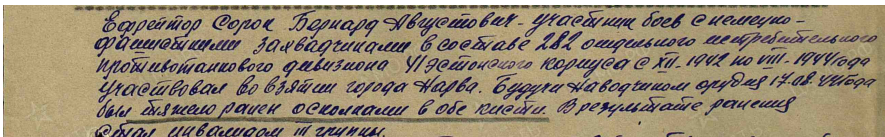 Ефрейтор Сорок Бернард Августович - участник боев с немецко-
фашистскими захватчиками в составе 282 отдельного истребительного
противотанкового дивизиона VI эстонского корпуса с XII. 1942 по VIII - 1944 года
Участвовал во взятии города Нарва. Будучи наводчиком орудия 17.08.44 года
был тяжело ранен осколками в обе кисти. В результате ранения
стал инвалидом III группы.